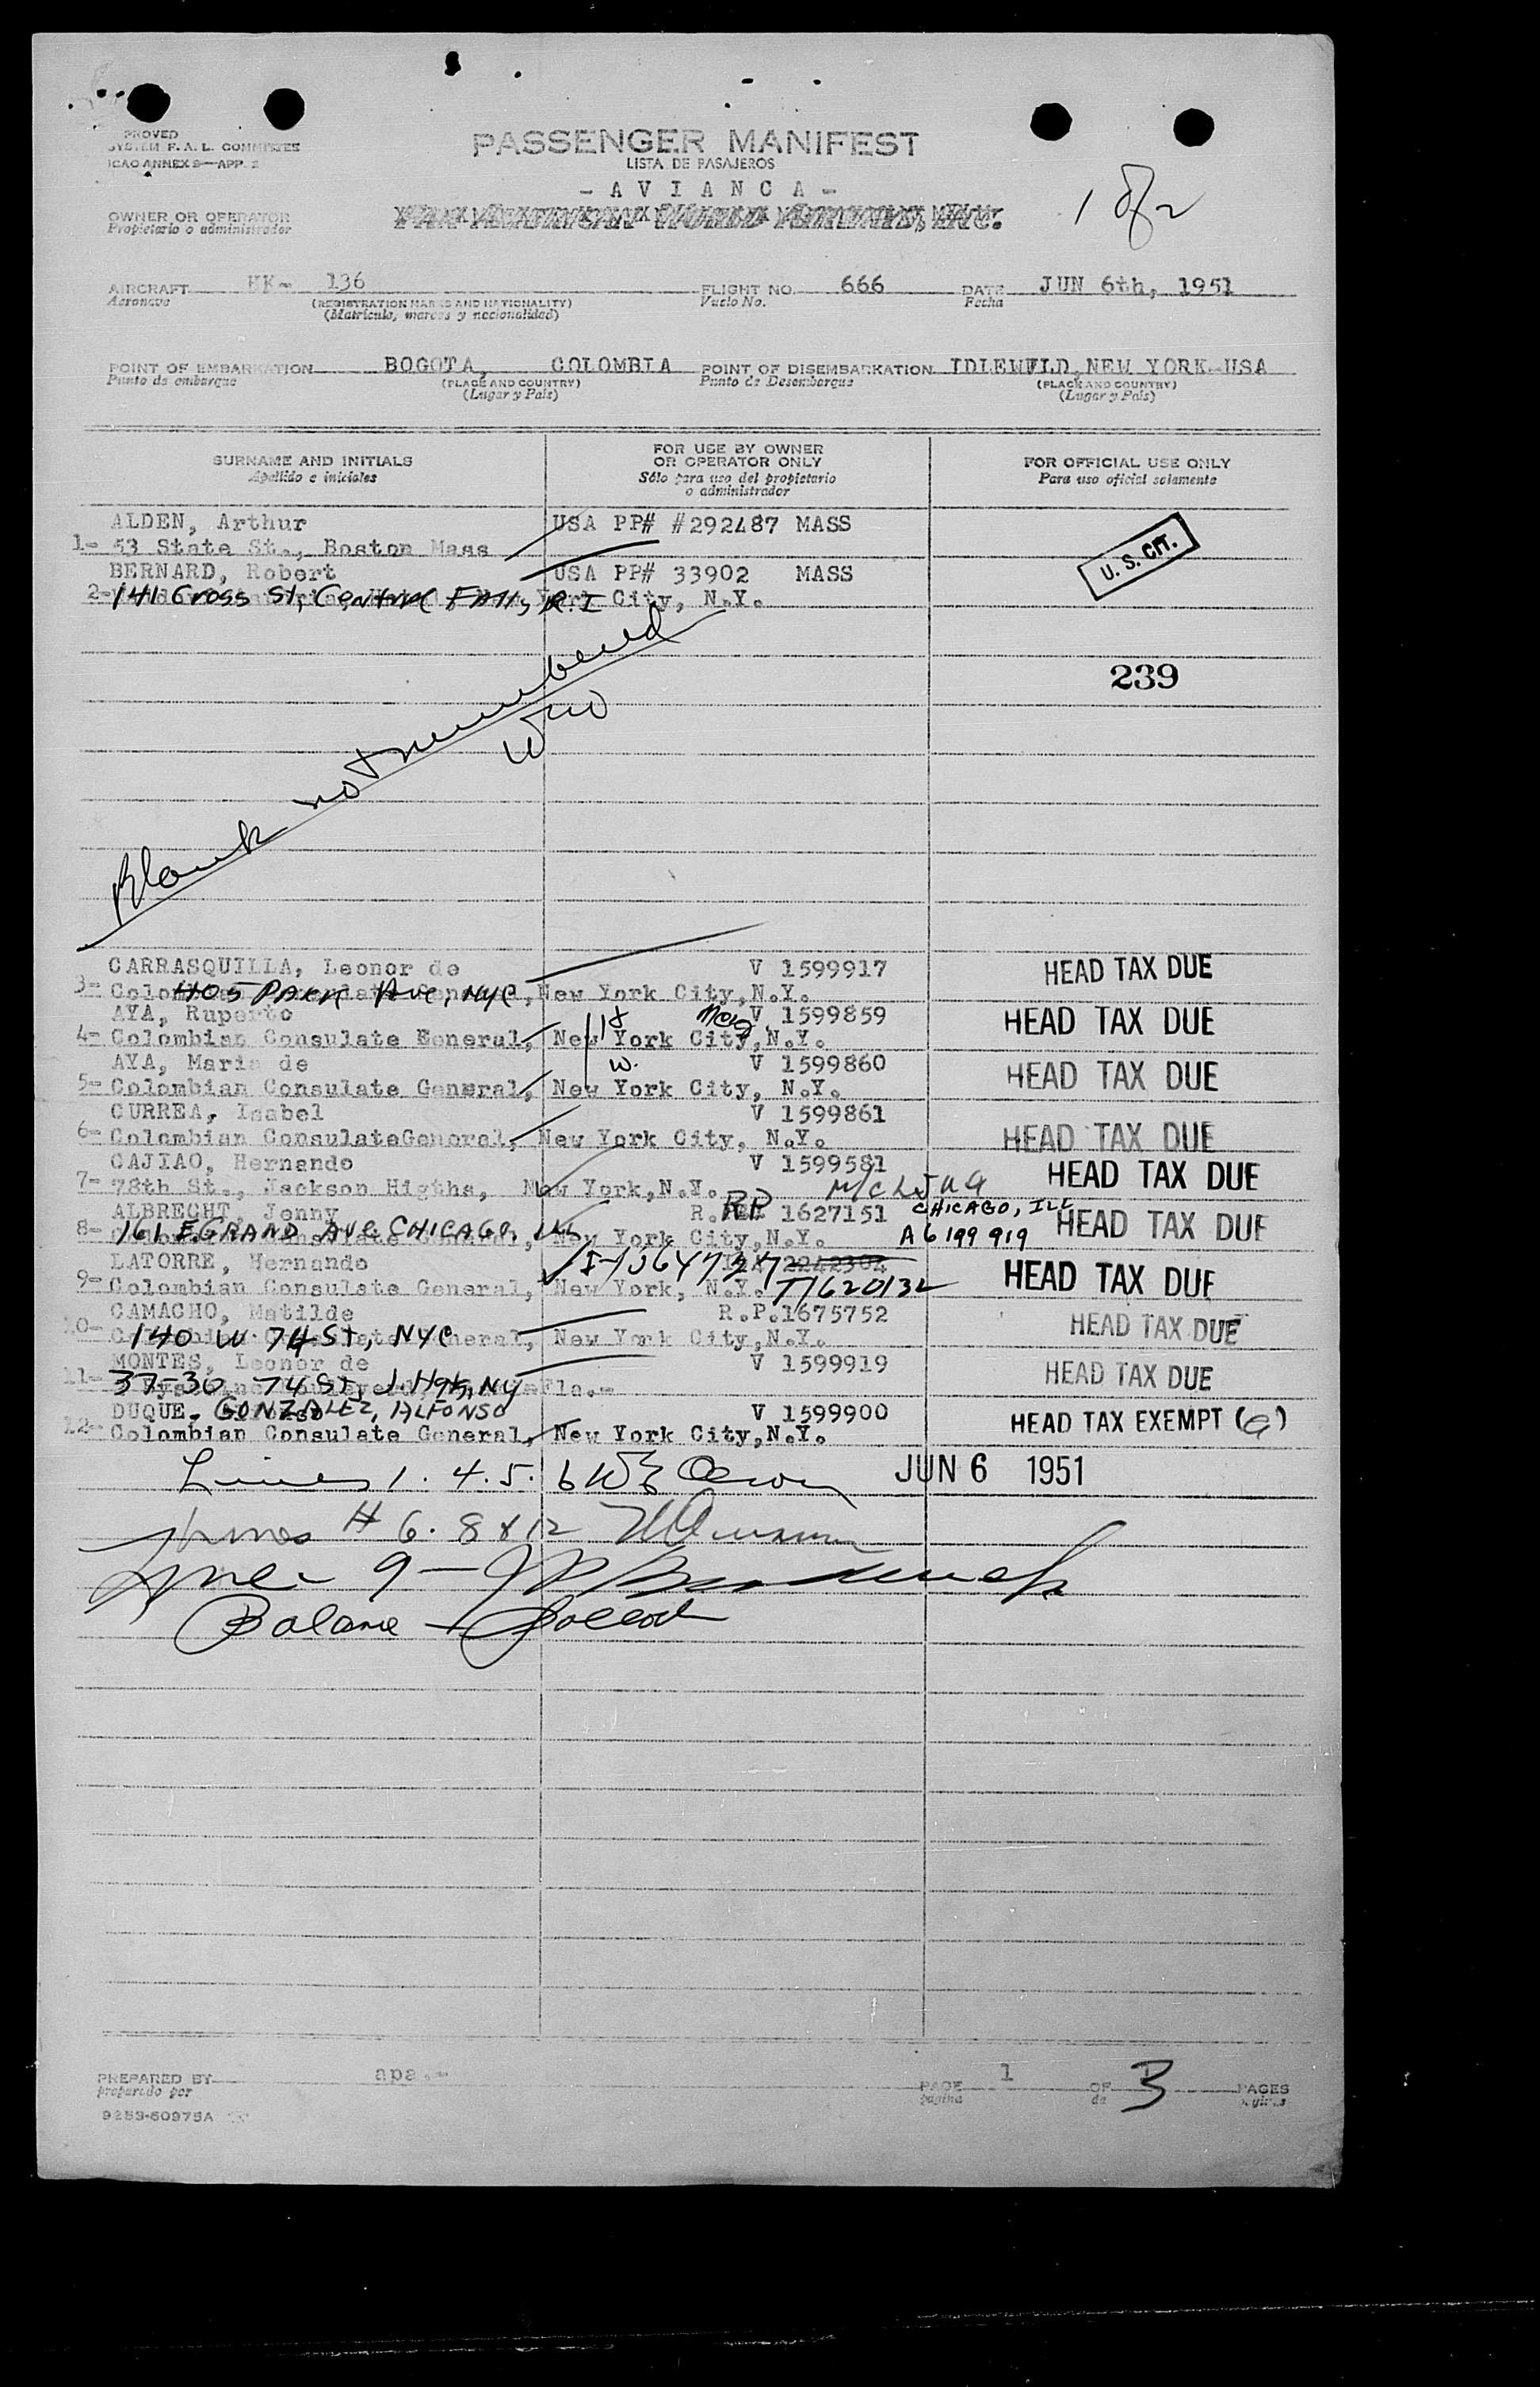 PROVED
SYSTEM F. A. L. COMMITTEE
ICAO ANNEX 9—APP. 2
PASSENGER MANIFEST
LISTA DE PASAJEROS
- A V I A N C A -
PAN AMERICAN WORLD AIRWAYS, INC.
1 of 2
OWNER OR OPERATOR
Propietario o administrador
AIRCRAFT HK- 136 FLIGHT NO. 666 DATE JUN 6th, 1951
Aeronave (REGISTRATION MARKS AND NATIONALITY) Vuelo No. Fecha
(Matricula, marcas y nacionalidad)
POINT OF EMBARKATION BOGOTA, COLOMBIA POINT OF DISEMBARKATION IDLEWILD,NEW YORK-USA
Punto de embarque (PLACE AND COUNTRY) Punto de Desembarque (PLACE AND COUNTRY)
(Lugar y País) (Lugar y País)
SURNAME AND INITIALS FOR USE BY OWNER OR OPERATOR ONLY FOR OFFICIAL USE ONLY
Apellido e iniciales Sólo para uso del propietario o administrador Para uso oficial solamente
ALDEN, Arthur USA PP# #292487 MASS
1- 53 State St., Boston Mass
U. S. CIT.
BERNARD, Robert USA PP# 33902 MASS
2- 141 Cross St, Central Falls, R.I City, N.Y.
239
Blank not numbered
CARRASQUILLA, Leonor de V 1599917 HEAD TAX DUE
3- 405 PARK AVE, NYC New York City,N.Y.
AYA, Ruperto V 1599859 HEAD TAX DUE
4- Colombian Consulate General, New York City,N.Y.
AYA, Maria de W. V 1599860 HEAD TAX DUE
5- Colombian Consulate General, New York City, N.Y.
CURREA, Isabel V 1599861
6- Colombian ConsulateGeneral, New York City, N.Y. HEAD TAX DUE
CAJIAO, Hernando V 1599581 HEAD TAX DUE
7- 78th St., Jackson Higths, New York,N.Y.
ALBRECHT, Jenny RP 1627151 CHICAGO, ILL HEAD TAX DUE
8- 161 E. GRAND AVE CHICAGO, ILL New York City,N.Y. A6199919
LATORRE, Hernando 2242304 HEAD TAX DUE
9- Colombian Consulate General, New York, N.Y. T1620132
CAMACHO, Matilde R.P.1675752 HEAD TAX DUE
10- 140 W 74 ST, NYC General, New York City,N.Y.
MONTES, Leonor de V 1599919 HEAD TAX DUE
11- 37-30 74 St, J. Hgts, NY Fla.-
DUQUE- GONZALEZ, ALFONSO V 1599900 HEAD TAX EXEMPT
12- Colombian Consulate General, New York City,N.Y.
JUN 6 1951
Lines 1. 4. 5. 6
Lines # 6. 8 & 12
Line 9 —
Balance —
PREPARED BY apa.- PAGE 1 OF 3 PAGES
preparado por página de
9253-60975A